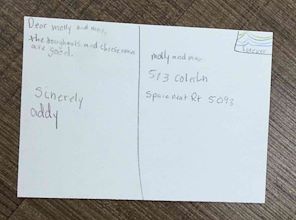 Dear molly and max,
the doughnuts and cheese man
are good.
Scnerely
addy
molly and max
513 Colerbn
Spainneat Rt 5093